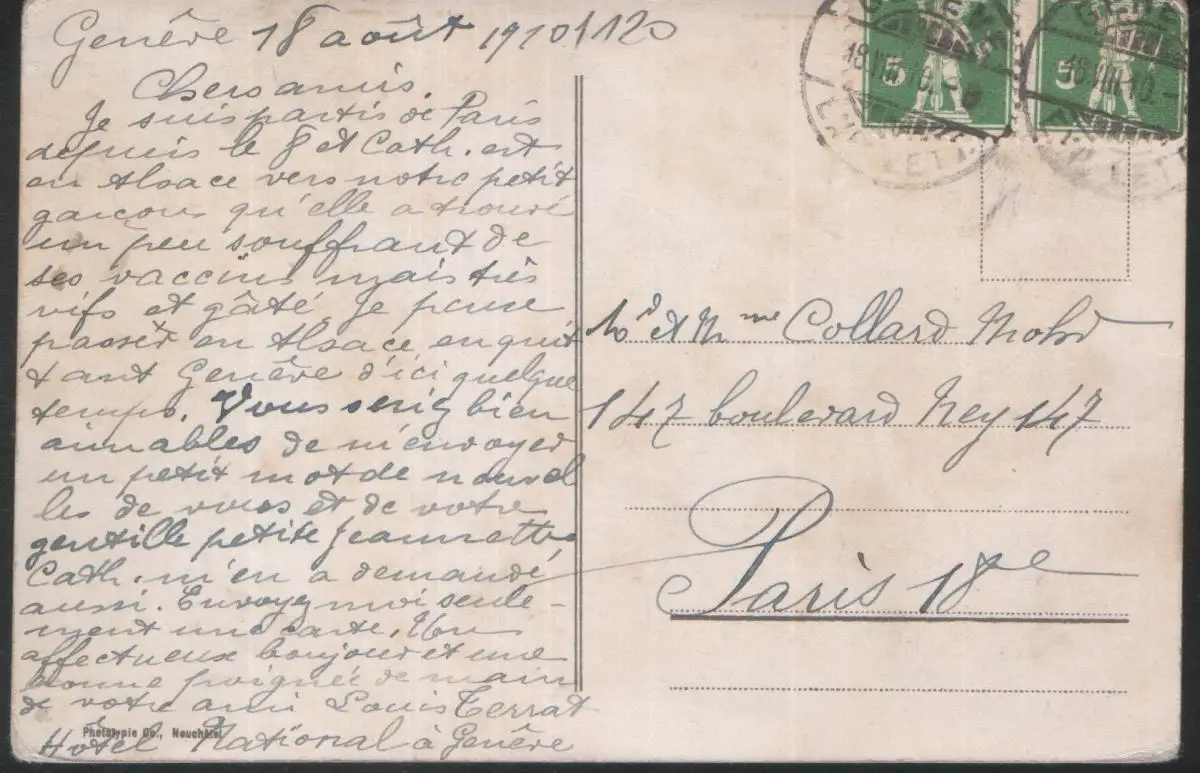 Genève 18 août 1910
Chers amis.
Je suis partis de Paris
depuis le 8 et Cath. est
en Alsace vers notre petit
garçon qu'elle a trouvé
un peu souffrant de
ses vaccins mais très
vifs et gâté. Je pense
passer en Alsace en quit
tant Genève d'ici quelque
temps. Vous seriez bien
aimables de m'envoyer
un petit mot de nouvel
les de vous et de votre
gentille petite Jeannette,
Cath. m'en a demandé
aussi. Envoyez moi seule-
ment une carte. Un
affectueux bonjour et une
bonne poignée de main
de votre ami Louis Terrat
Hôtel National à Genève
Phototypie Co., Neuchâtel
5
5
et Mme Collard Mohr
147 boulevard Ney 147
Paris 18e